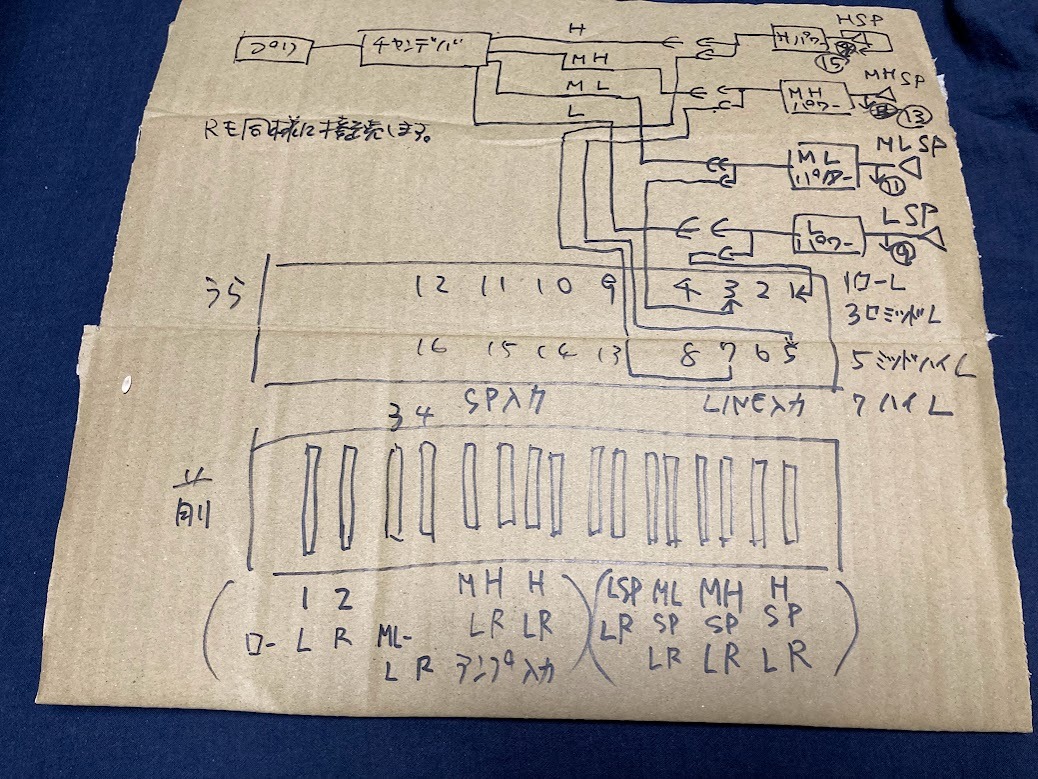 H
HSP
プリ
チャンデバ
Hパワー
15
MH
MH SP
MH パワー
13
ML
L
Rも同様に接続します。
ML SP
ML パワー
11
L SP
L パワー
9
うら
12 11 10 9 4 3 2 1
1ローL
3ロミッドL
16 15 14 13 8 7 6 5
5ミッドハイL
SP入力 LINE入力
7ハイL
3 4
前
1 2 MH H LSP ML MH H
ロー L R ML- LR LR LR SP SP SP
L R アンプ入力 LR LR LR